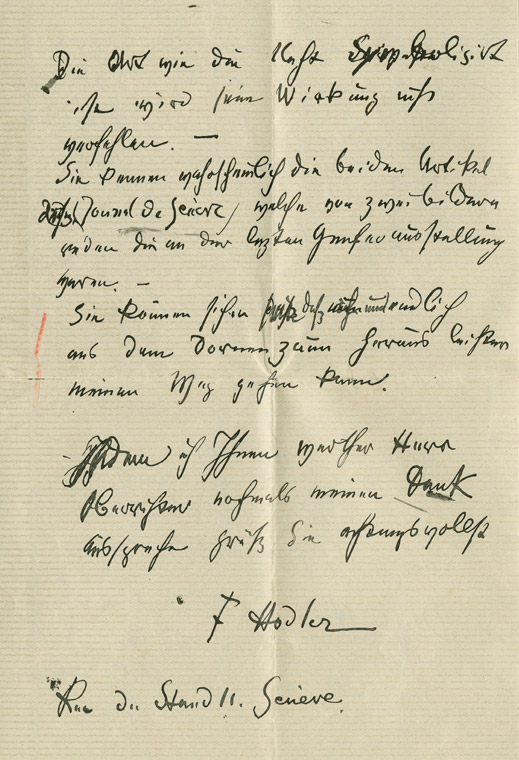 Die Art wie die Nacht Symbolisirt
ist wird seine Wirkung nicht
verfehlen. —
Sie kennen wahrscheinlich die beiden Artikel
(Journal de Genève) welche von zwei bildern
reden die an der lezten Genferausstellung
waren. —
Sie können sehen daß ich nun endlich
aus dem Dornenzaun heraus leichter
meinen Weg gehen kann.
Indem ich Ihnen werther Herr
Oberrichter nochmals meinen Dank
ausspreche grüß Sie achtungsvollst
F Hodler
Rue du Stand 11. Genève.